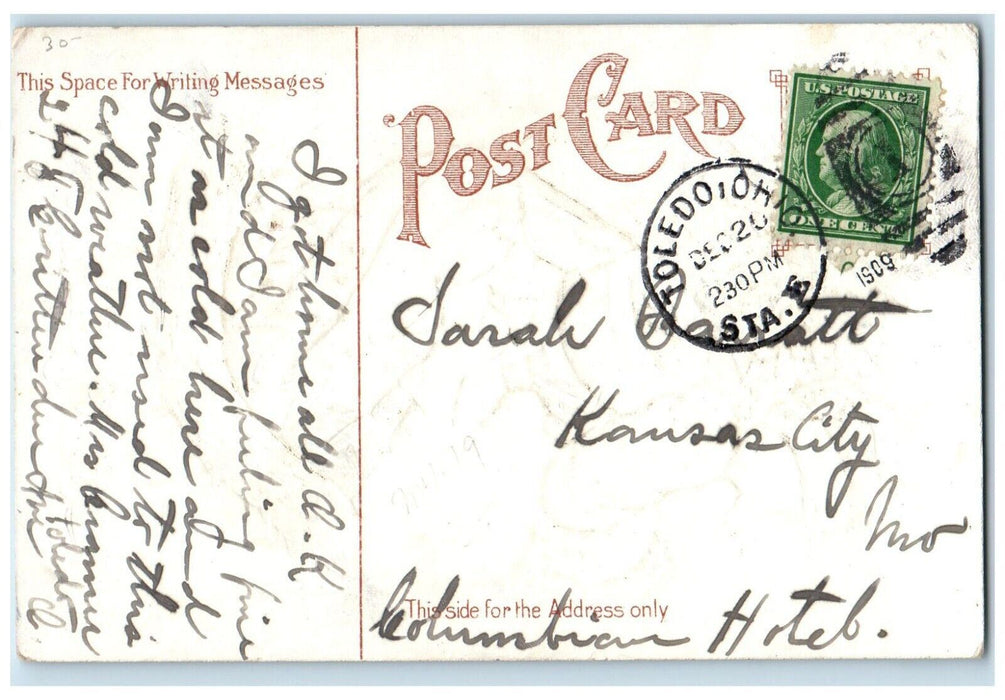 30-
This Space For Writing Messages
POST CARD
U.S. POSTAGE
ONE CENT
TOLEDO, OHIO
DEC 20
230 PM
STA. E
1909
I got home all O.K
and I am feeling fine
it is cold here and
I am not used to this
cold weather. Mrs
Ave Toledo O.
Sarah
Kansas City
Mo
This side for the Address only
Columbian Hotel.